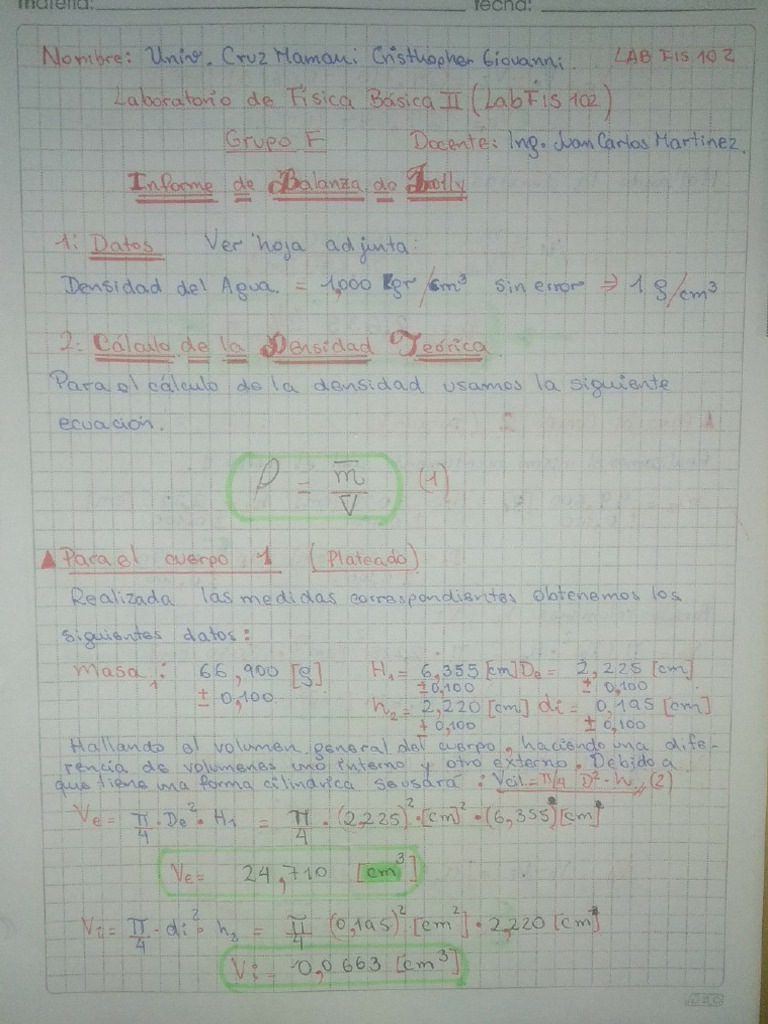 materia: fecha:
Nombre: Univ. Cruz Mamani Cristhopher Giovanni. LAB FIS 102
Laboratorio de Física Básica II (LabFis 102)
Grupo F Docente: Ing. Juan Carlos Martinez.
Informe de Balanza de Jolly
1: Datos Ver hoja adjunta:
Densidad del Agua = 1,000 kgr/cm³ sin error ⇒ 1 g/cm³
2: Cálculo de la Densidad Teórica
Para el cálculo de la densidad usamos la siguiente
ecuación.
ρ = m̅/V̅ (1)
▲ Para el cuerpo 1 (Plateado)
Realizada las medidas correspondientes obtenemos los
siguientes datos:
masa₁: 66,900 [g] H₁= 6,355 [cm] De= 2,225 [cm]
± 0,100 ±0,100 ± 0,100
h₂= 2,220 [cm] di= 0,195 [cm]
± 0,100 ± 0,100
Hallando el volumen general del cuerpo, haciendo una dife-
rencia de volumenes uno interno y otro externo. Debido a
que tiene una forma cilindrica se usará: Vcil = π/4 D²·h (2)
Ve = π/4 · De² · H₁ = π/4 · (2,225)² · [cm]² · (6,355) [cm]
Ve = 24,710 [cm³]
Vi = π/4 · di² · h₂ = π/4 (0,195)² [cm²] · 2,220 [cm]
Vi = 0,0663 [cm³]